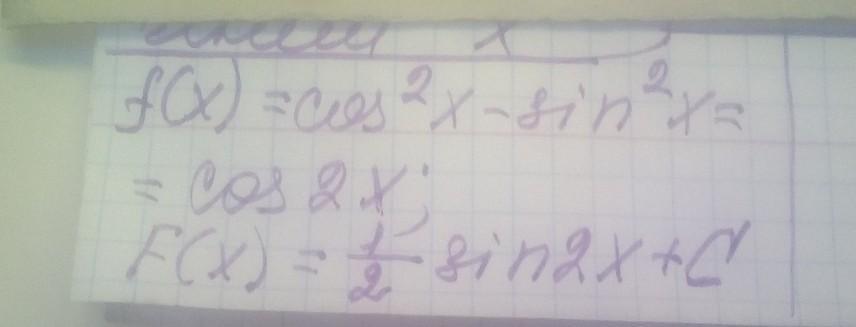 f(x) = cos²x - sin²x =
= cos 2x;
F(x) = 1/2 sin2x + C